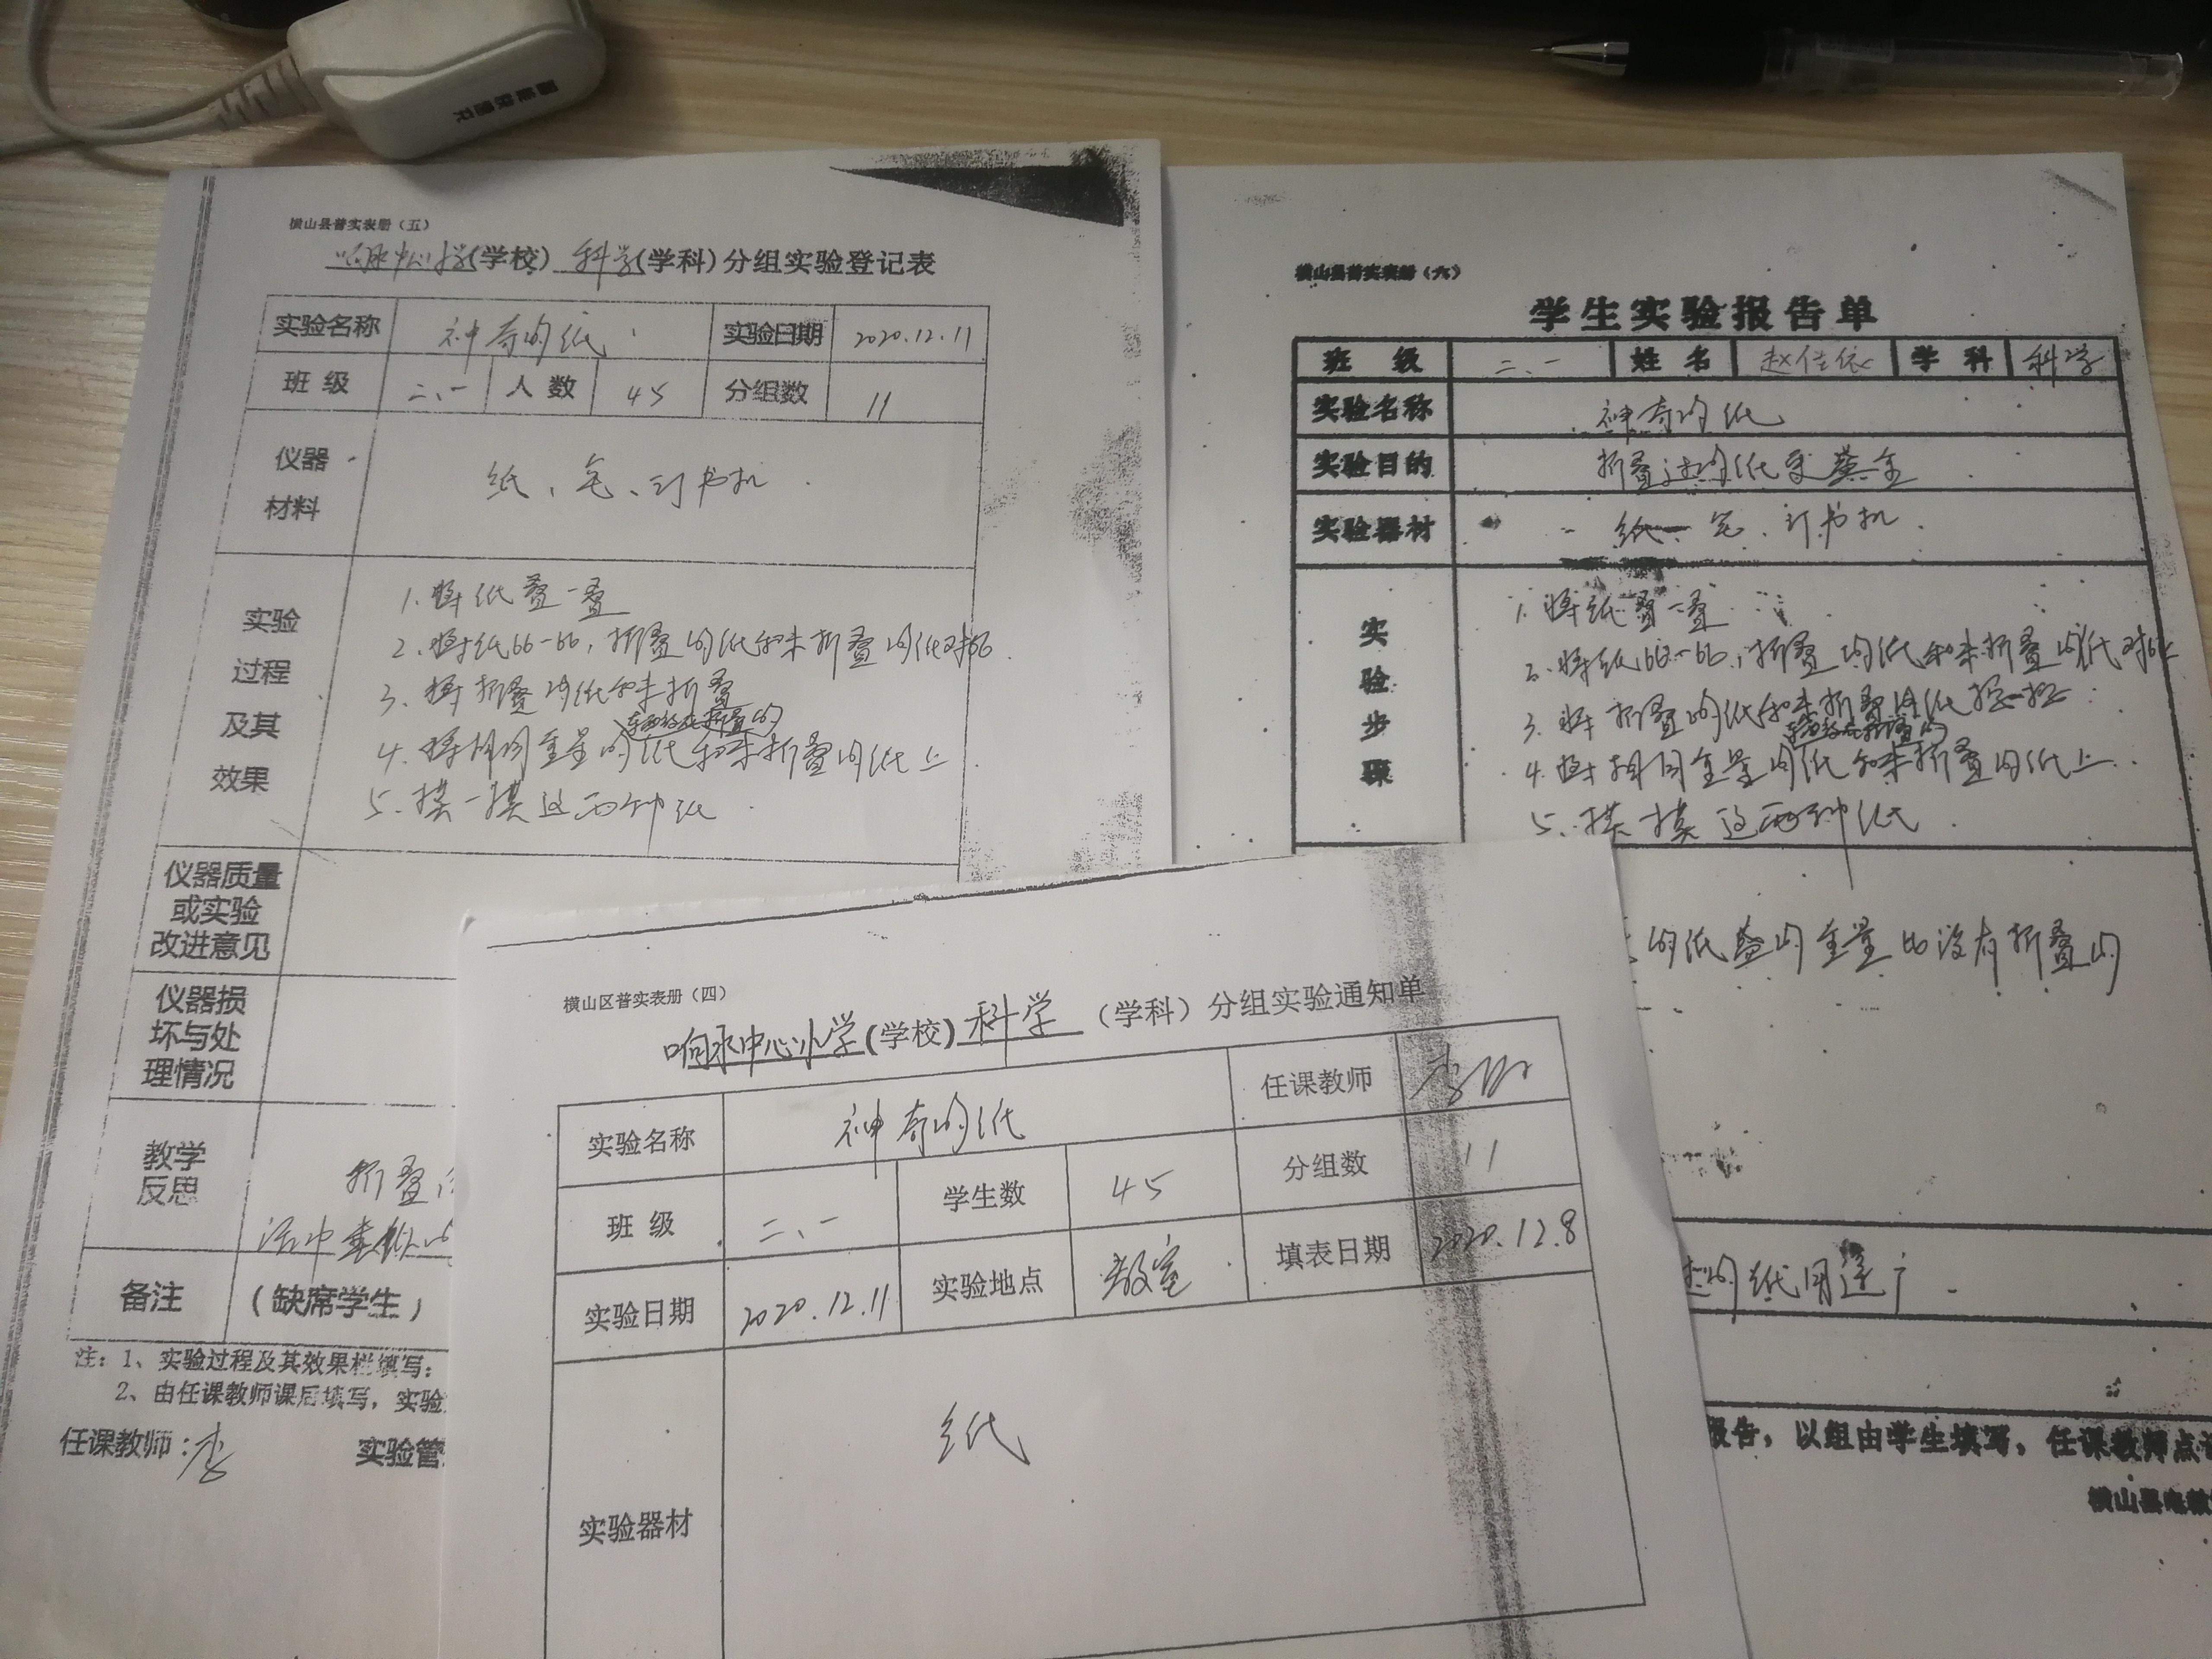 横山县普实表册（五）
响水中心小学(学校) 科学(学科)分组实验登记表
实验名称 神奇的纸 实验日期 2020.12.11
班级 二、一 人数 45 分组数 11
仪器
材料
纸、笔、订书机
实验
过程
及其
效果
1. 将纸叠一叠
2. 将纸比一比，折叠的纸和未折叠的纸对比
3. 将折叠的纸和未折叠
4. 将相同重量的纸和未折叠的纸上
5. 摸一摸这两种纸
仪器质量
或实验
改进意见
仪器损
坏与处
理情况
教学
反思
折叠
活中
备注 （缺席学生）
注：1、实验过程及其效果栏填写：
2、由任课教师课后填写，实验
任课教师：李
实验管
横山县普实表册（六）
学生实验报告单
班级 二、一 姓名 赵佳依 学科 科学
实验名称 神奇的纸
实验目的 折叠过的纸更
实验器材 纸 笔、订书机
实验步骤
1. 将纸叠一叠
2. 将纸比一比，折叠的纸和未折叠的纸对比
3. 将折叠的纸和未折叠的纸
4. 将相同重量的纸和未折叠的纸上
5. 摸一摸这两种纸
的纸 的重量比没有折叠的
的纸用途广
报告，以组由学生填写，任课教师点
横山县电教
横山区普实表册（四）
响水中心小学(学校) 科学（学科）分组实验通知单
实验名称 神奇的纸 任课教师 李
班级 二、一 学生数 45 分组数 11
实验日期 2020.12.11 实验地点 教室 填表日期 2020.12.8
实验器材 纸